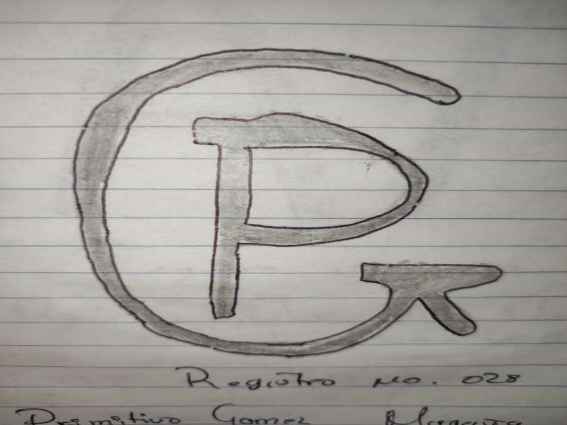 GP
Registro No. 028
Primitivo Gomez